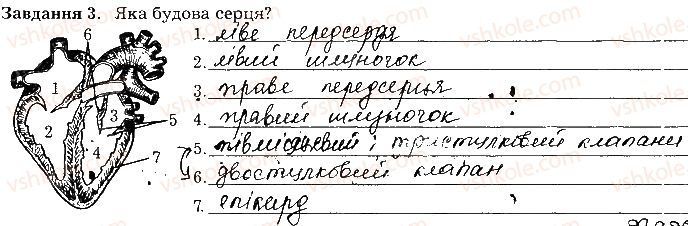 Завдання 3. Яка будова серця?
1. ліве передсердя
2. лівий шлуночок
3. праве передсердя
4. правий шлуночок
5. півмісяцевий і тристулковий клапани
6. двостулковий клапан
7. епікард
6
1
2
3
4
5
7
vshkole.com